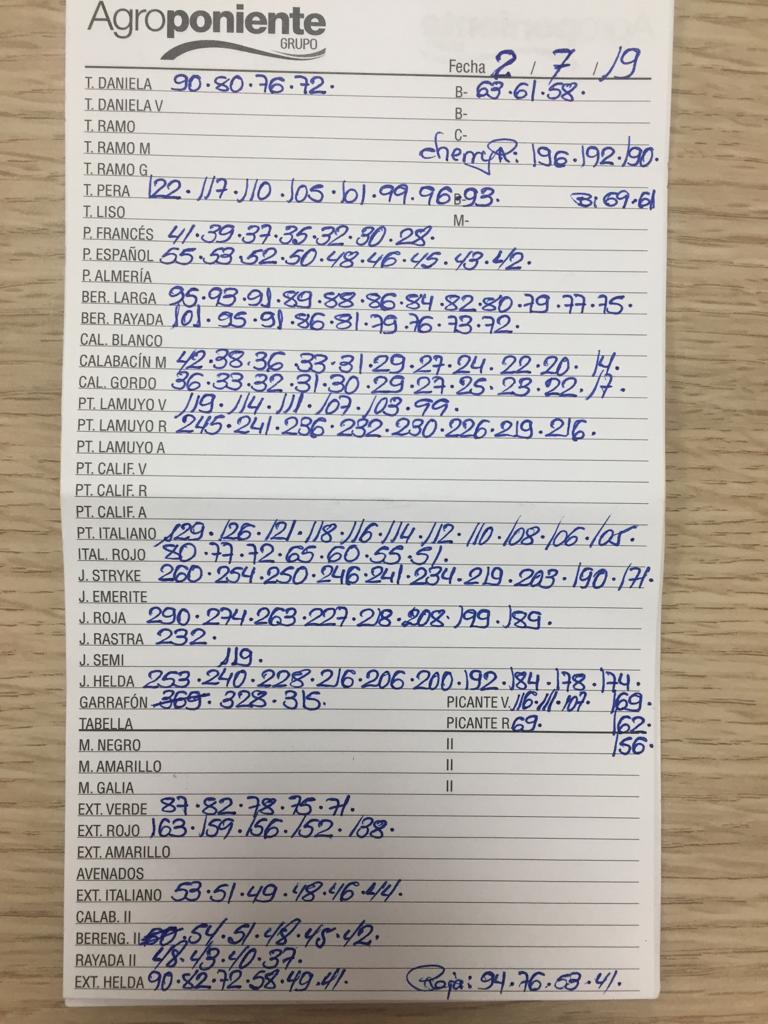 Agroponiente
GRUPO
Fecha 2 / 7 / 19
T. DANIELA 90·80·76·72· B- 63·61·58·
T. DANIELA V B-
T. RAMO C-
T. RAMO M cherry A: 196·192·190·
T. RAMO G
T. PERA 122·117·110·105·101·99·96·93· B: 69·61
T. LISO M-
P. FRANCÉS 41·39·37·35·32·30·28·
P. ESPAÑOL 55·53·52·50·48·46·45·43·42·
P. ALMERÍA
BER. LARGA 95·93·91·89·88·86·84·82·80·79·77·75·
BER. RAYADA 101·95·91·86·81·79·76·73·72·
CAL. BLANCO
CALABACÍN M 42·38·36·33·31·29·27·24·22·20·14·
CAL. GORDO 36·33·32·31·30·29·27·25·23·22·17·
PT. LAMUYO V 119·114·111·107·103·99·
PT. LAMUYO R 245·241·236·232·230·226·219·216·
PT. LAMUYO A
PT. CALIF. V
PT. CALIF. R
PT. CALIF. A
PT. ITALIANO 129·126·121·118·116·114·112·110·108·106·105·
ITAL. ROJO 80·77·72·65·60·55·51·
J. STRYKE 260·254·250·246·241·234·219·203·190·171·
J. EMERITE
J. ROJA 290·274·263·227·218·208·199·189·
J. RASTRA 232·
J. SEMI 119·
J. HELDA 253·240·228·216·206·200·192·184·178·174·
GARRAFÓN 365· 328·315· PICANTE V. 116·111·107· 169·
TABELLA PICANTE R 69· 162·
M. NEGRO II 156·
M. AMARILLO II
M. GALIA II
EXT. VERDE 87·82·78·75·71·
EXT. ROJO 163·159·156·152·138·
EXT. AMARILLO
AVENADOS
EXT. ITALIANO 53·51·49·48·46·44·
CALAB. II
BERENG. II 54·51·48·45·42·
RAYADA II 48·43·40·37·
EXT. HELDA 90·82·72·58·49·41· Roja: 94·76·53·41·